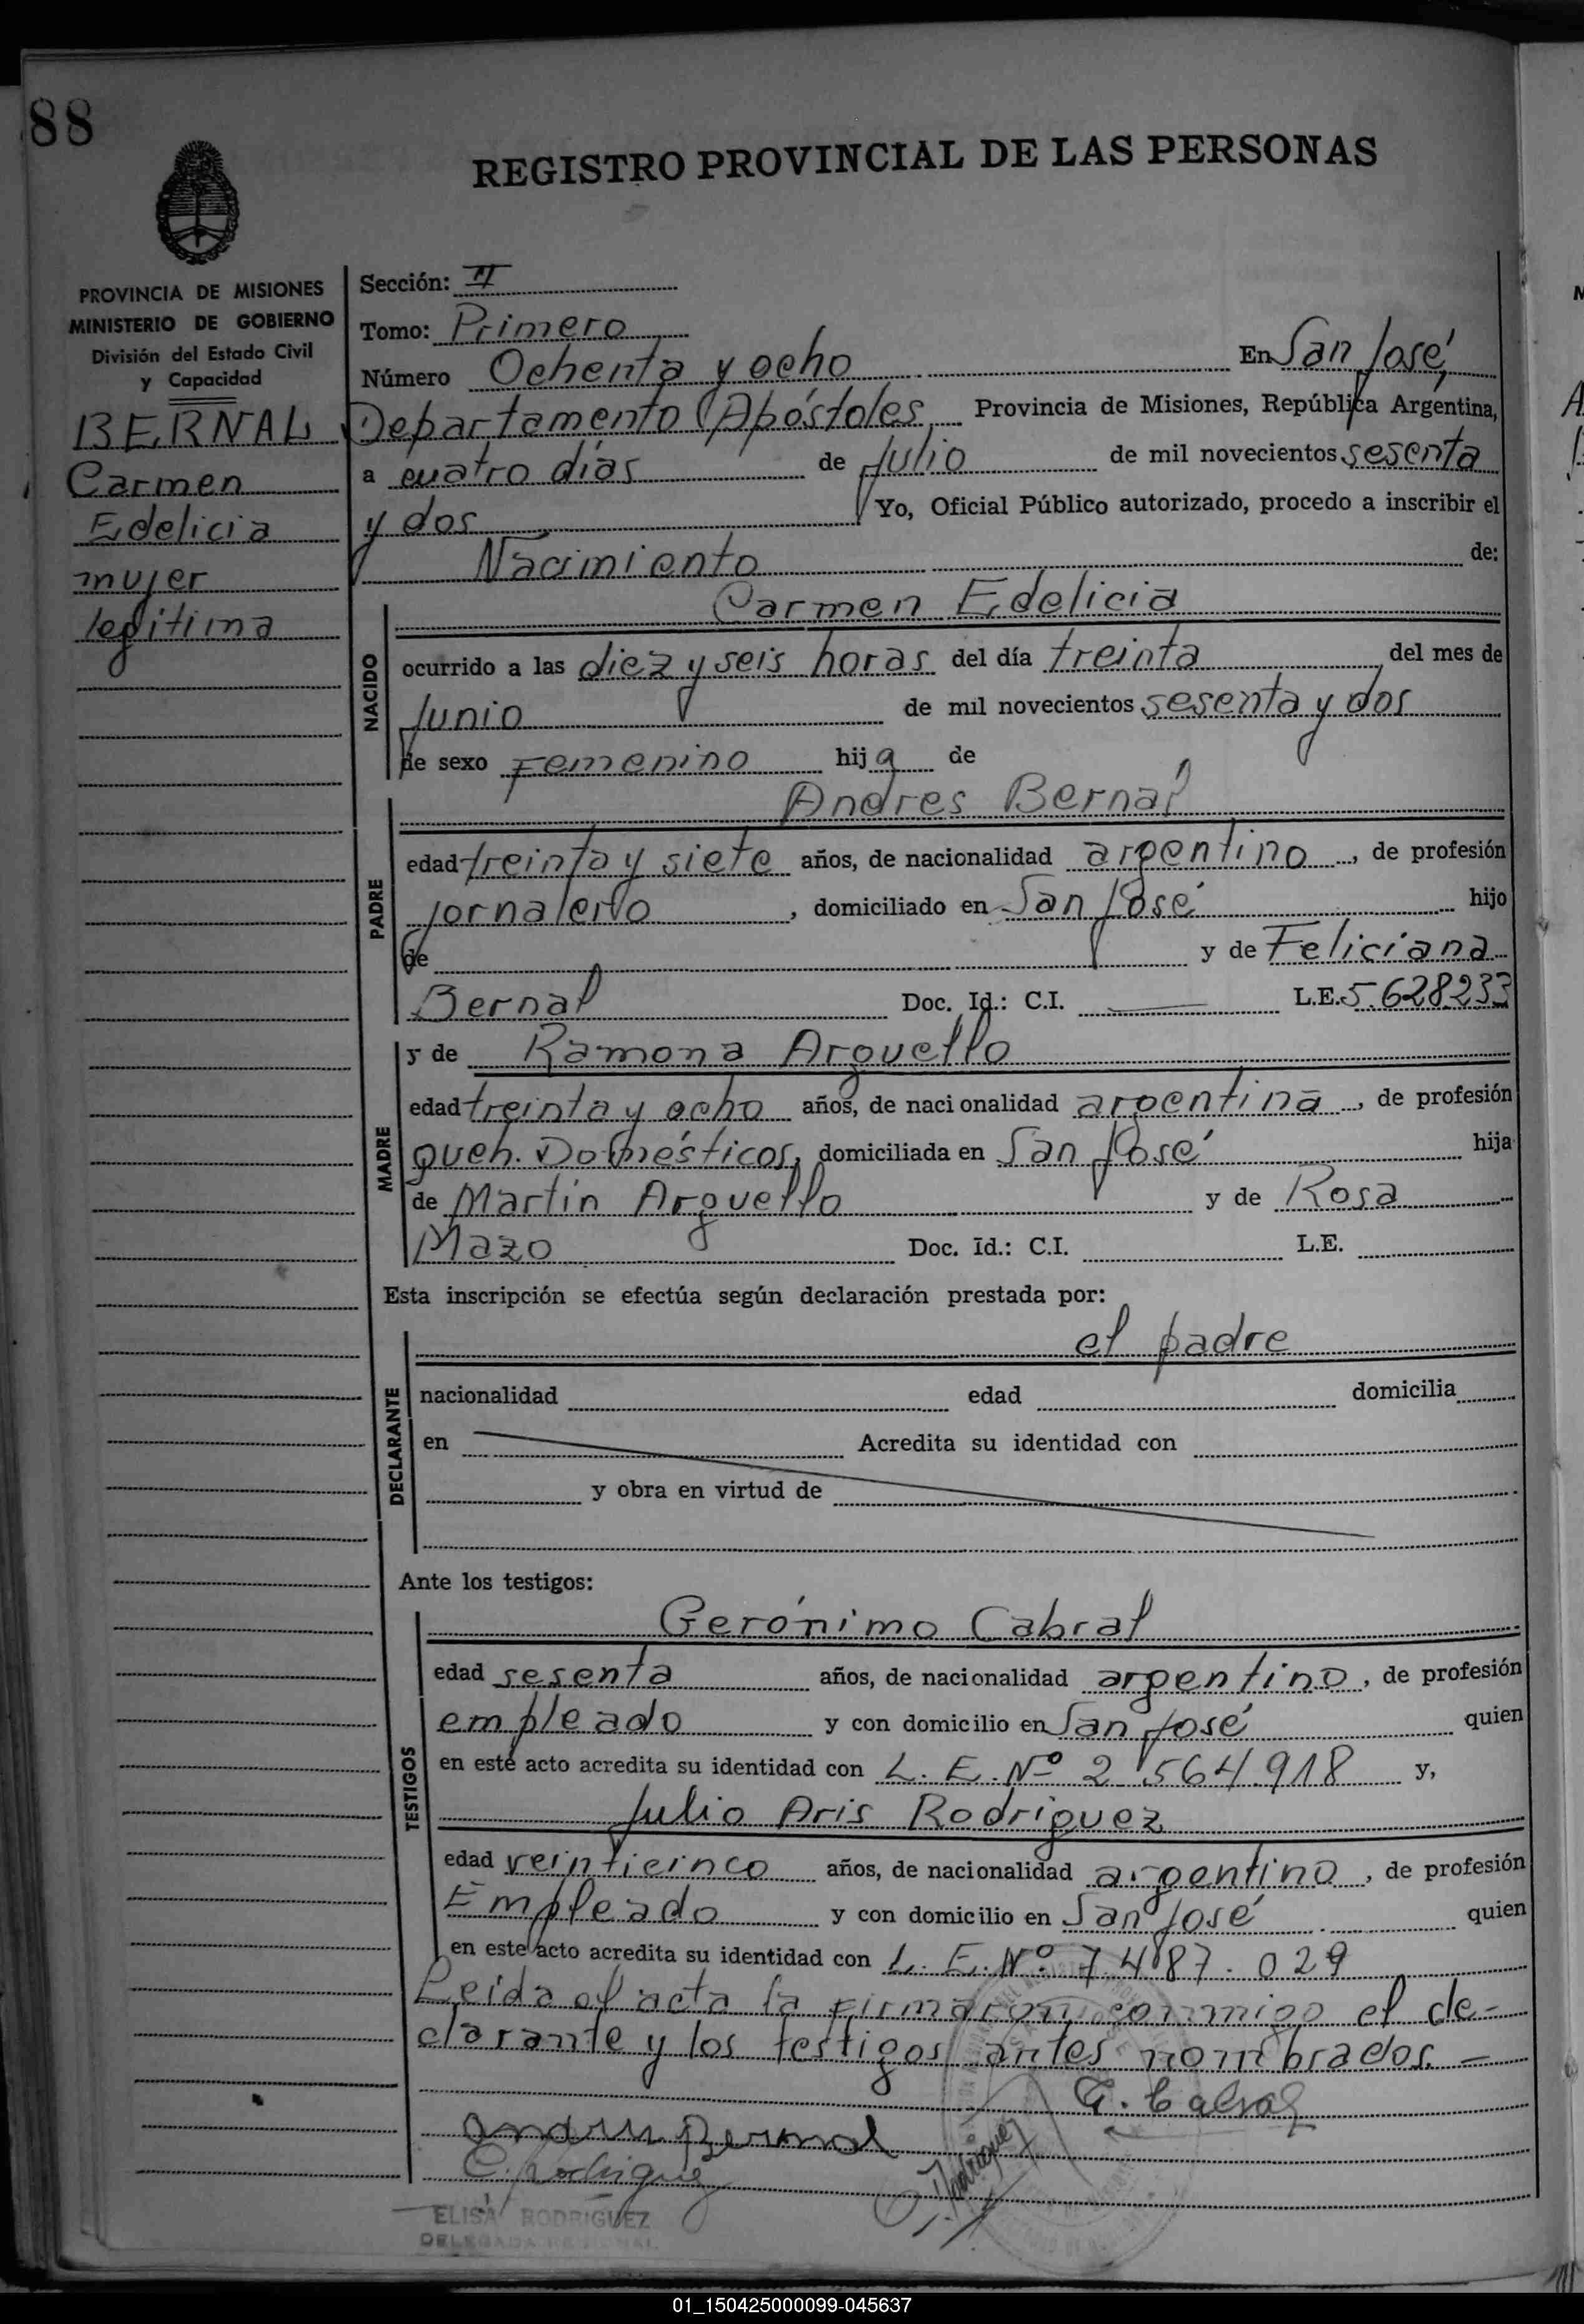 88
REGISTRO PROVINCIAL DE LAS PERSONAS
PROVINCIA DE MISIONES
MINISTERIO DE GOBIERNO
División del Estado Civil
y Capacidad
BERNAL
Carmen
Edelicia
mujer
legitima
Sección: II
Tomo: Primero
Número Ochenta y ocho En San José,
Departamento Apóstoles, Provincia de Misiones, República Argentina,
a cuatro días de Julio de mil novecientos sesenta
y dos Yo, Oficial Público autorizado, procedo a inscribir el
Nacimiento de:
Carmen Edelicia
NACIDO
ocurrido a las diez y seis horas del día treinta del mes de
Junio de mil novecientos sesenta y dos
de sexo Femenino hija de
Andres Bernal
PADRE
edad treinta y siete años, de nacionalidad argentino, de profesión
jornalero, domiciliado en San José hijo
de y de Feliciana
Bernal Doc. Id.: C.I. L.E. 5.628233
MADRE
y de Ramona Arguello
edad treinta y ocho años, de nacionalidad argentina, de profesión
queh. Domésticos, domiciliada en San José hija
de Martin Arguello y de Rosa
Mazo Doc. Id.: C.I. L.E.
Esta inscripción se efectúa según declaración prestada por:
el padre
DECLARANTE
nacionalidad edad domicilia
en Acredita su identidad con
y obra en virtud de
Ante los testigos:
Gerónimo Cabral
TESTIGOS
edad sesenta años, de nacionalidad argentino, de profesión
empleado y con domicilio en San José quien
en este acto acredita su identidad con L. E. Nº 2 564.918 y,
Julio Aris Rodriguez
edad veinticinco años, de nacionalidad argentino, de profesión
Empleado y con domicilio en San José quien
en este acto acredita su identidad con L. E. Nº 7.487.029
Leida el acta la firmaron conmigo el de-
clarante y los testigos antes nombrados. -
G. Cabral
Andres Bernal
Rodriguez
E. Rodriguez
ELISA RODRIGUEZ
DELEGADA
01_150425000099-045637